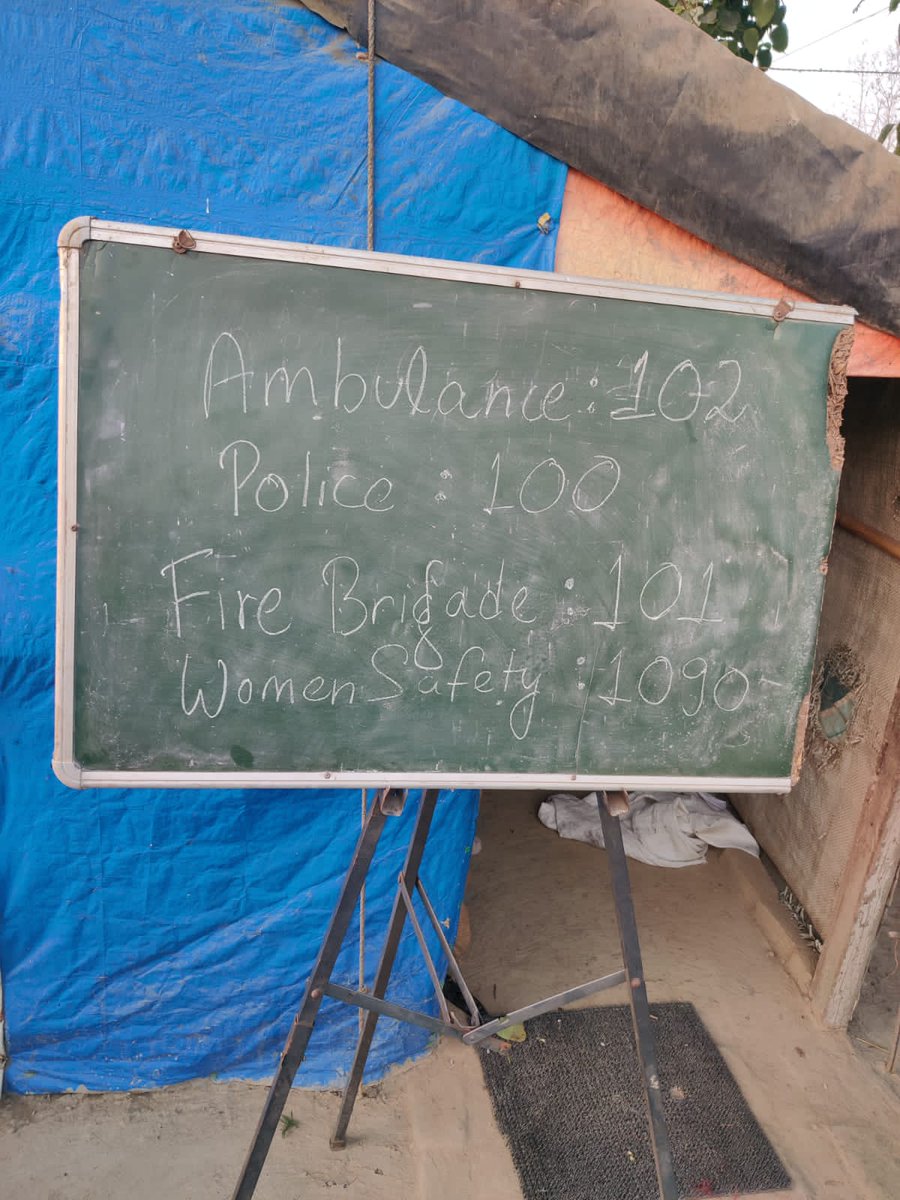 Ambulance : 102
Police : 100
Fire Brigade : 101
Women Safety : 1090